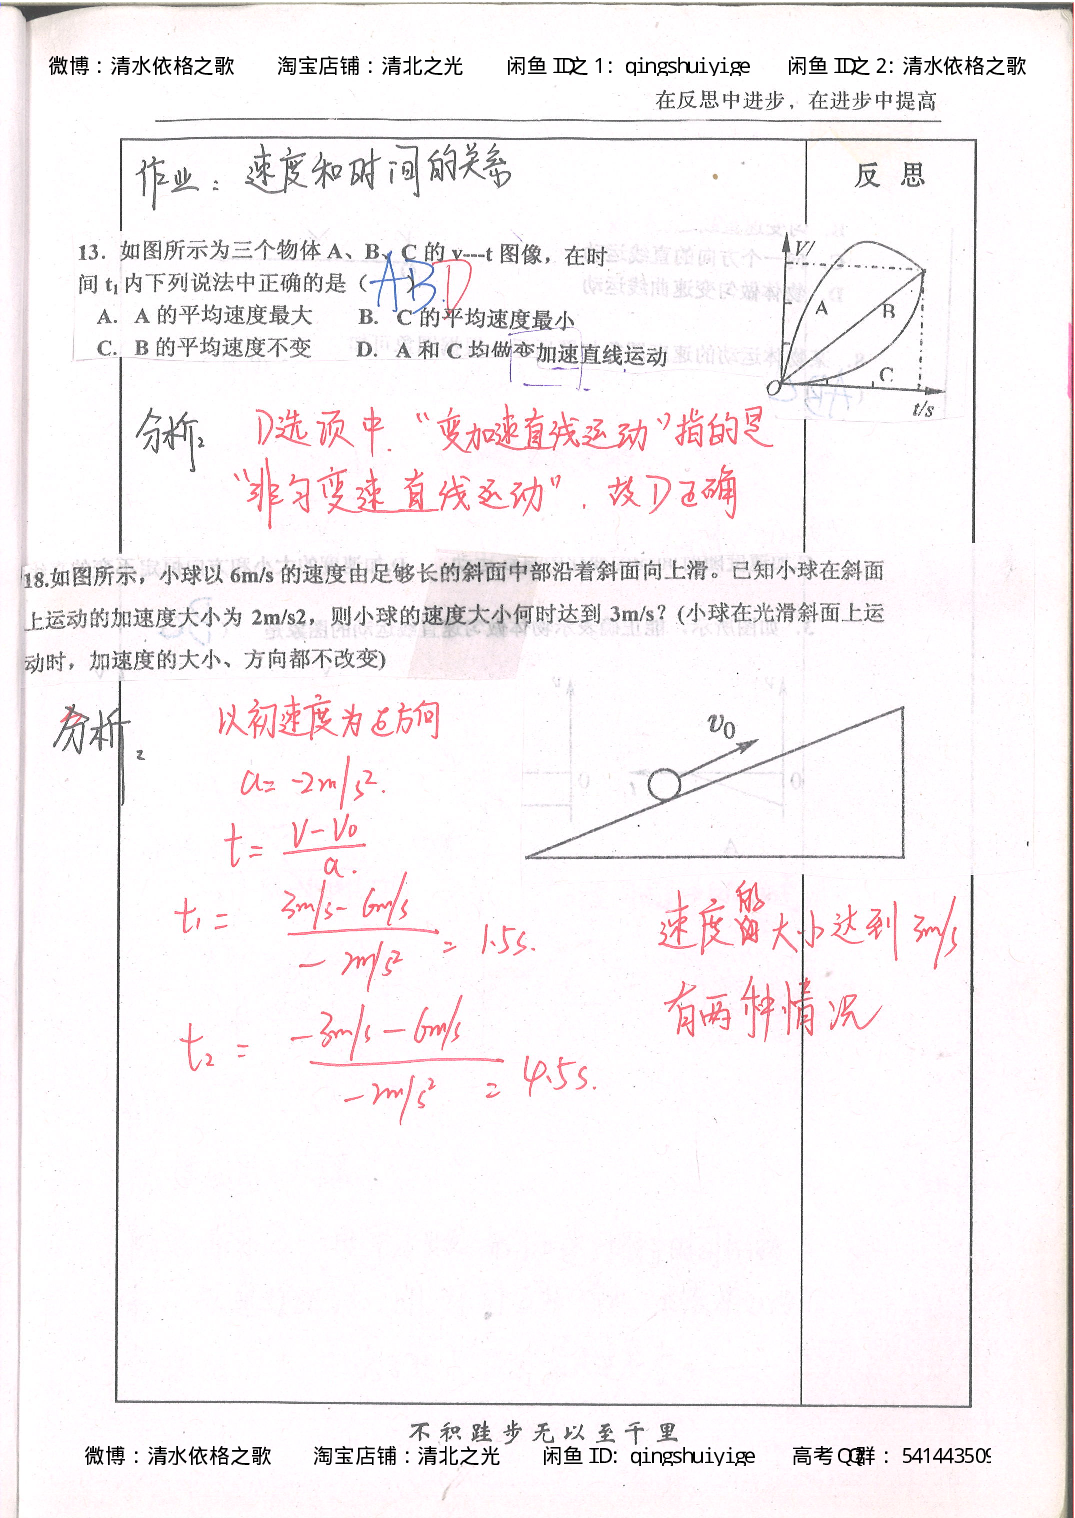 微博：清水依格之歌 淘宝店铺：清北之光 闲鱼 ID之 1：qingshuiyige 闲鱼 ID之 2：清水依格之歌
在反思中进步，在进步中提高
作业：速度和时间的关系
反 思
13．如图所示为三个物体 A、B、C 的 v---t 图像，在时
间 t₁内下列说法中正确的是（ABD
A．A 的平均速度最大 B．C 的平均速度最小
C．B 的平均速度不变 D．A 和 C 均做变加速直线运动
V/
A
B
C
O
t/s
分析： D选项中．“变加速直线运动”指的是
“非匀变速直线运动”．故D正确
18.如图所示，小球以 6m/s 的速度由足够长的斜面中部沿着斜面向上滑。已知小球在斜面
上运动的加速度大小为 2m/s2，则小球的速度大小何时达到 3m/s？(小球在光滑斜面上运
动时，加速度的大小、方向都不改变)
分析： 以初速度为正方向
v₀
a= -2m/s².
t= (V-V₀)/a.
t₁= (3m/s-6m/s)/(-2m/s²) = 1.5s.
速度的大小达到3m/s
有两种情况
t₂= (-3m/s-6m/s)/(-2m/s²) = 4.5s.
不积跬步无以至千里
微博：清水依格之歌 淘宝店铺：清北之光 闲鱼 ID：qingshuiyige 高考QQ群：541443509